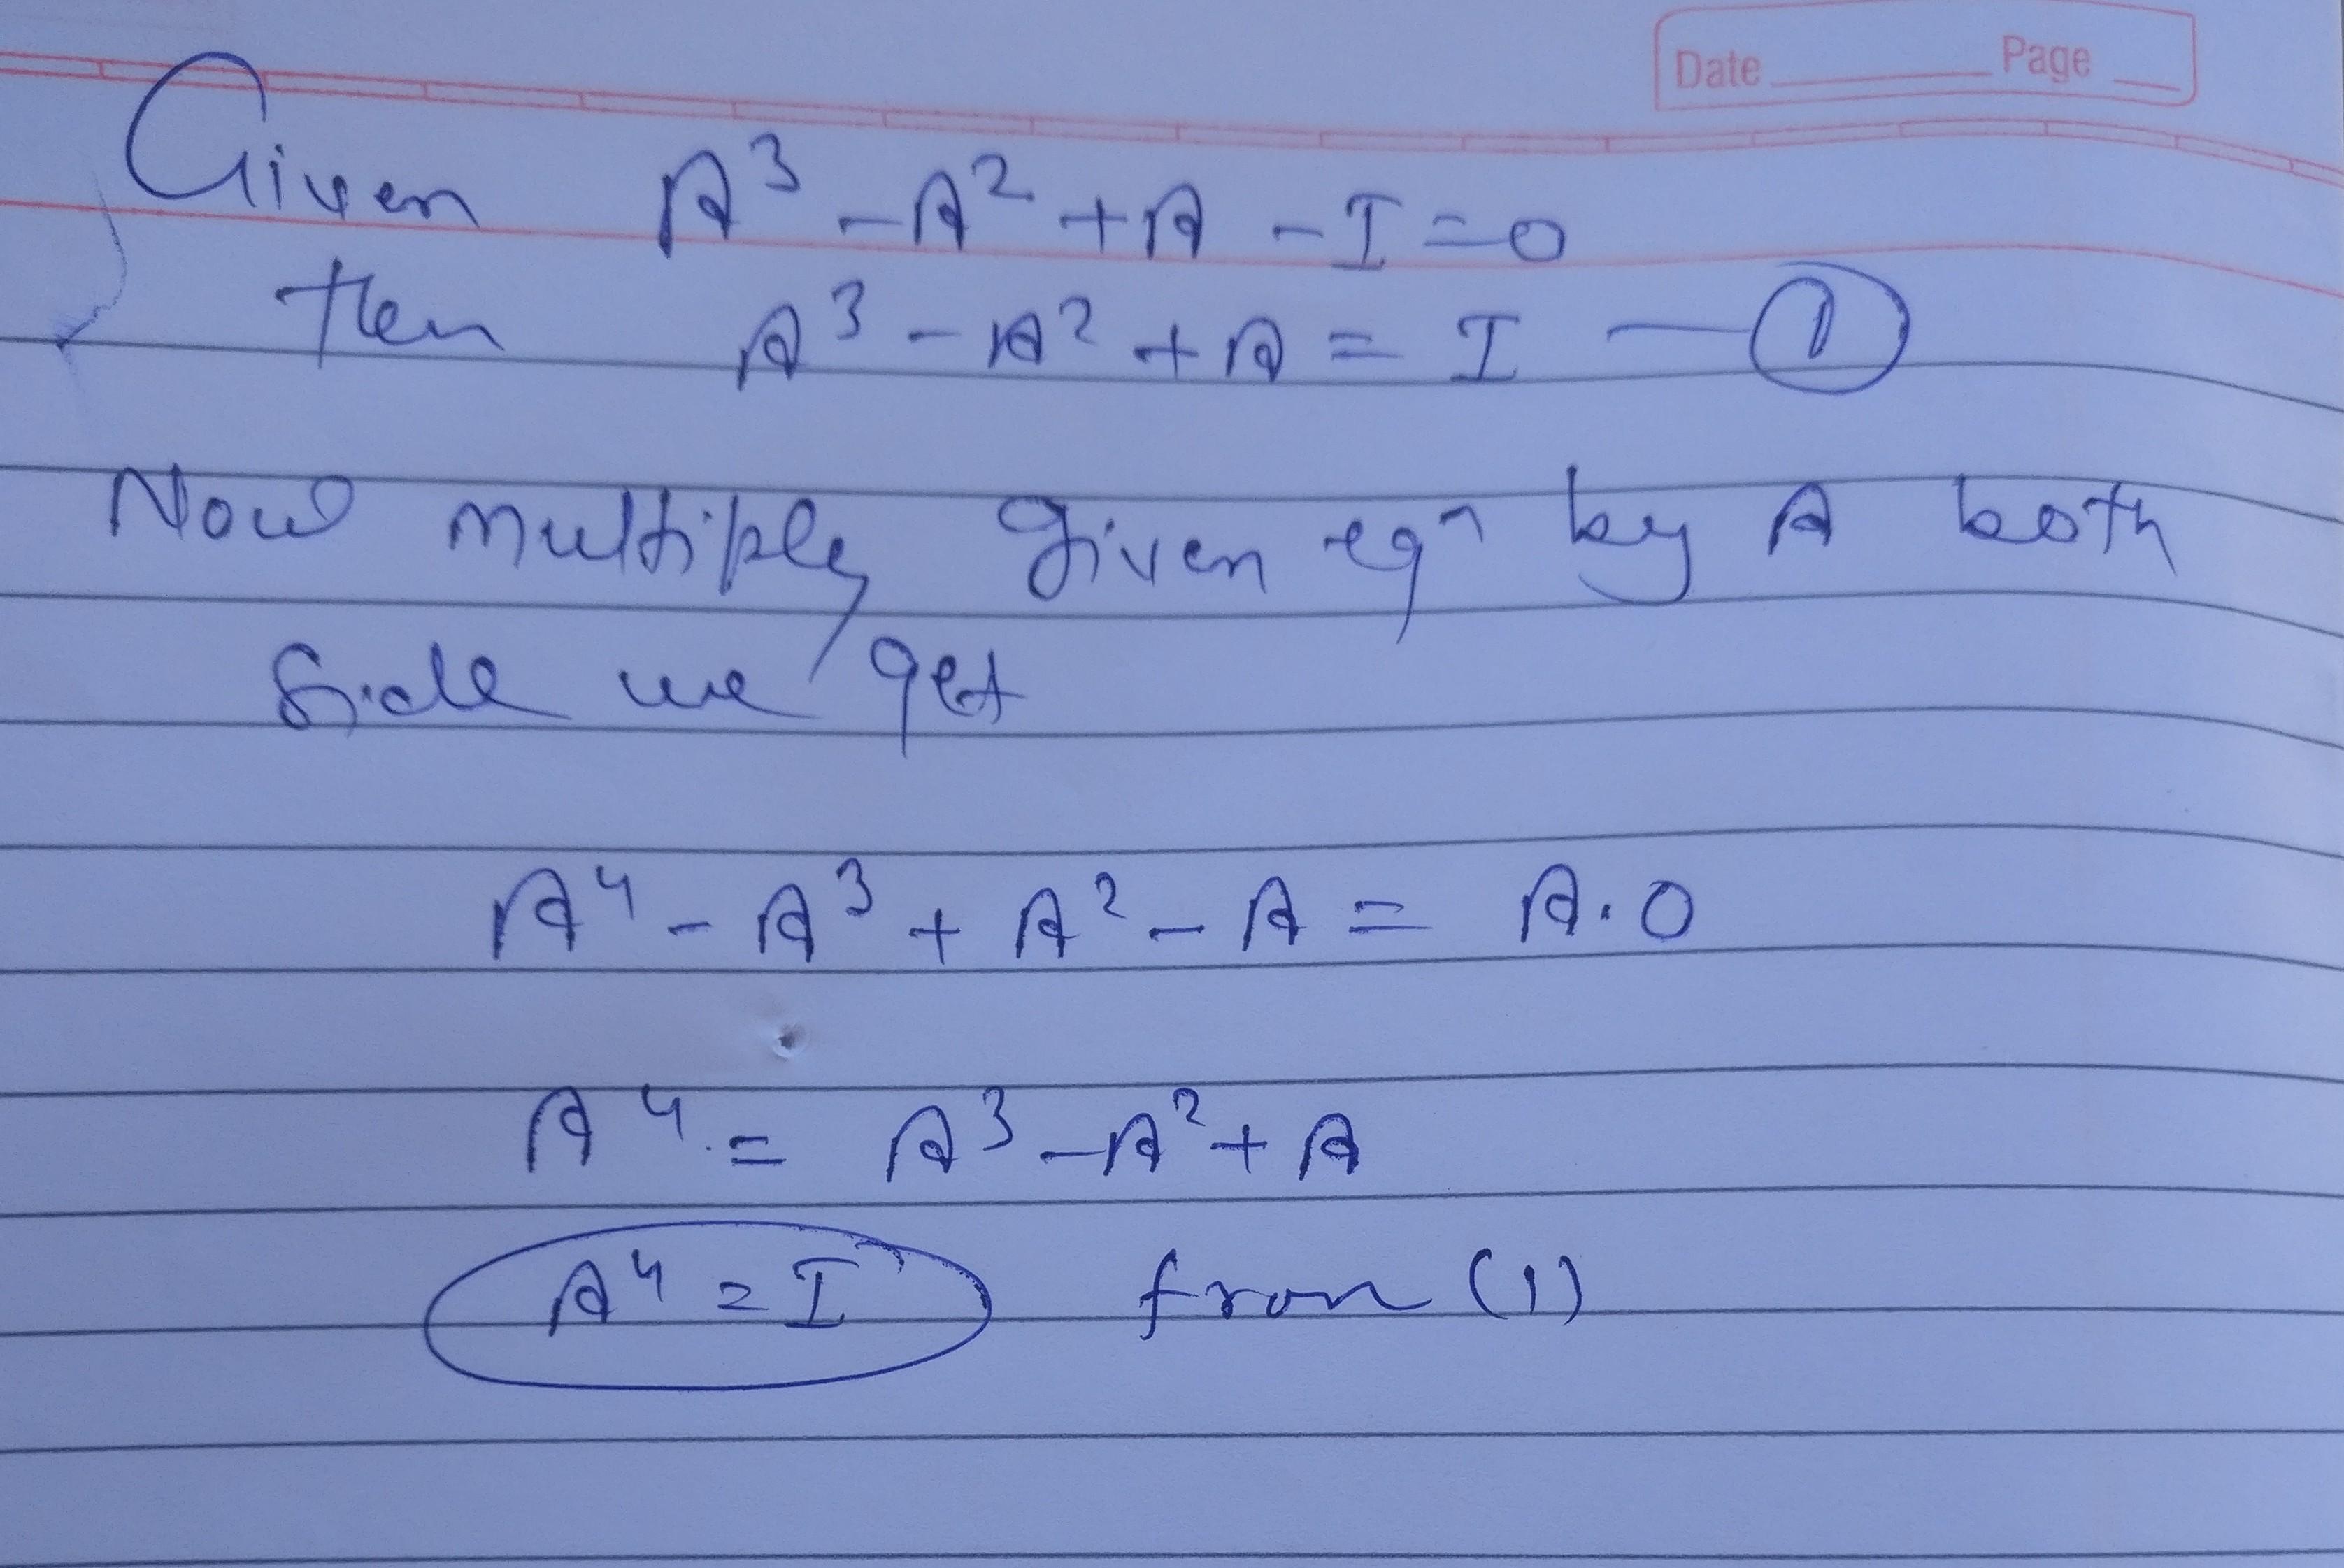 Date Page
Given A³ - A² + A - I = 0
then A³ - A² + A = I — ①
Now multiply given eqⁿ by A both
side we get
A⁴ - A³ + A² - A = A.0
A⁴ = A³ - A² + A
A⁴ = I from (1)